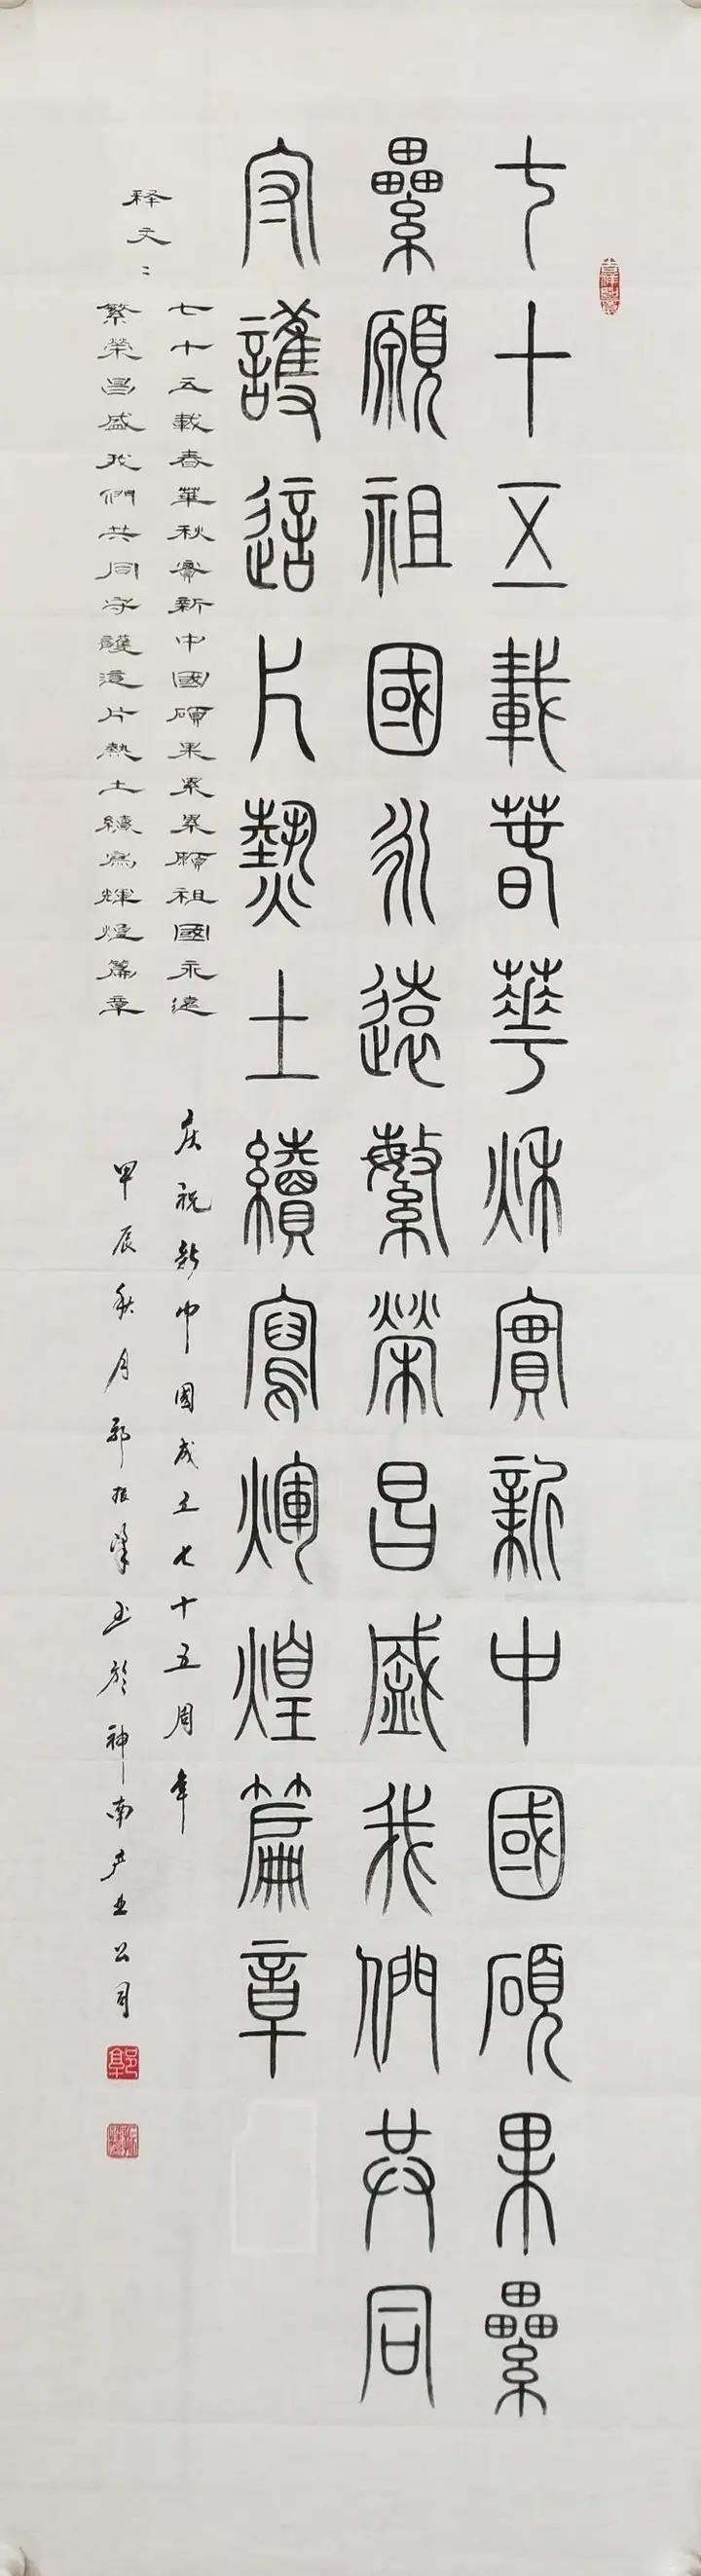 七十五載春華秋實新中國碩果纍
纍願祖國永遠繁榮昌盛我們共同
守護這片熱土續寫輝煌篇章
释文：
七十五載春華秋實新中國碩果累累願祖國永遠
繁榮昌盛我們共同守護這片熱土續寫輝煌篇章
庆祝新中国成立七十五周年
甲辰秋月郭振峰书於神南产业公司